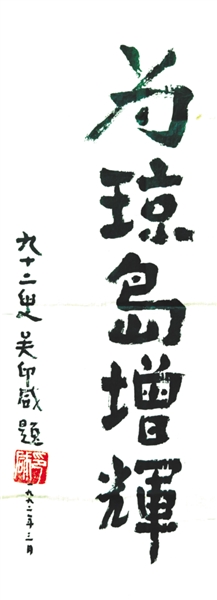 为琼島增輝
九十二叟 吴印咸 題
一九九二年三月